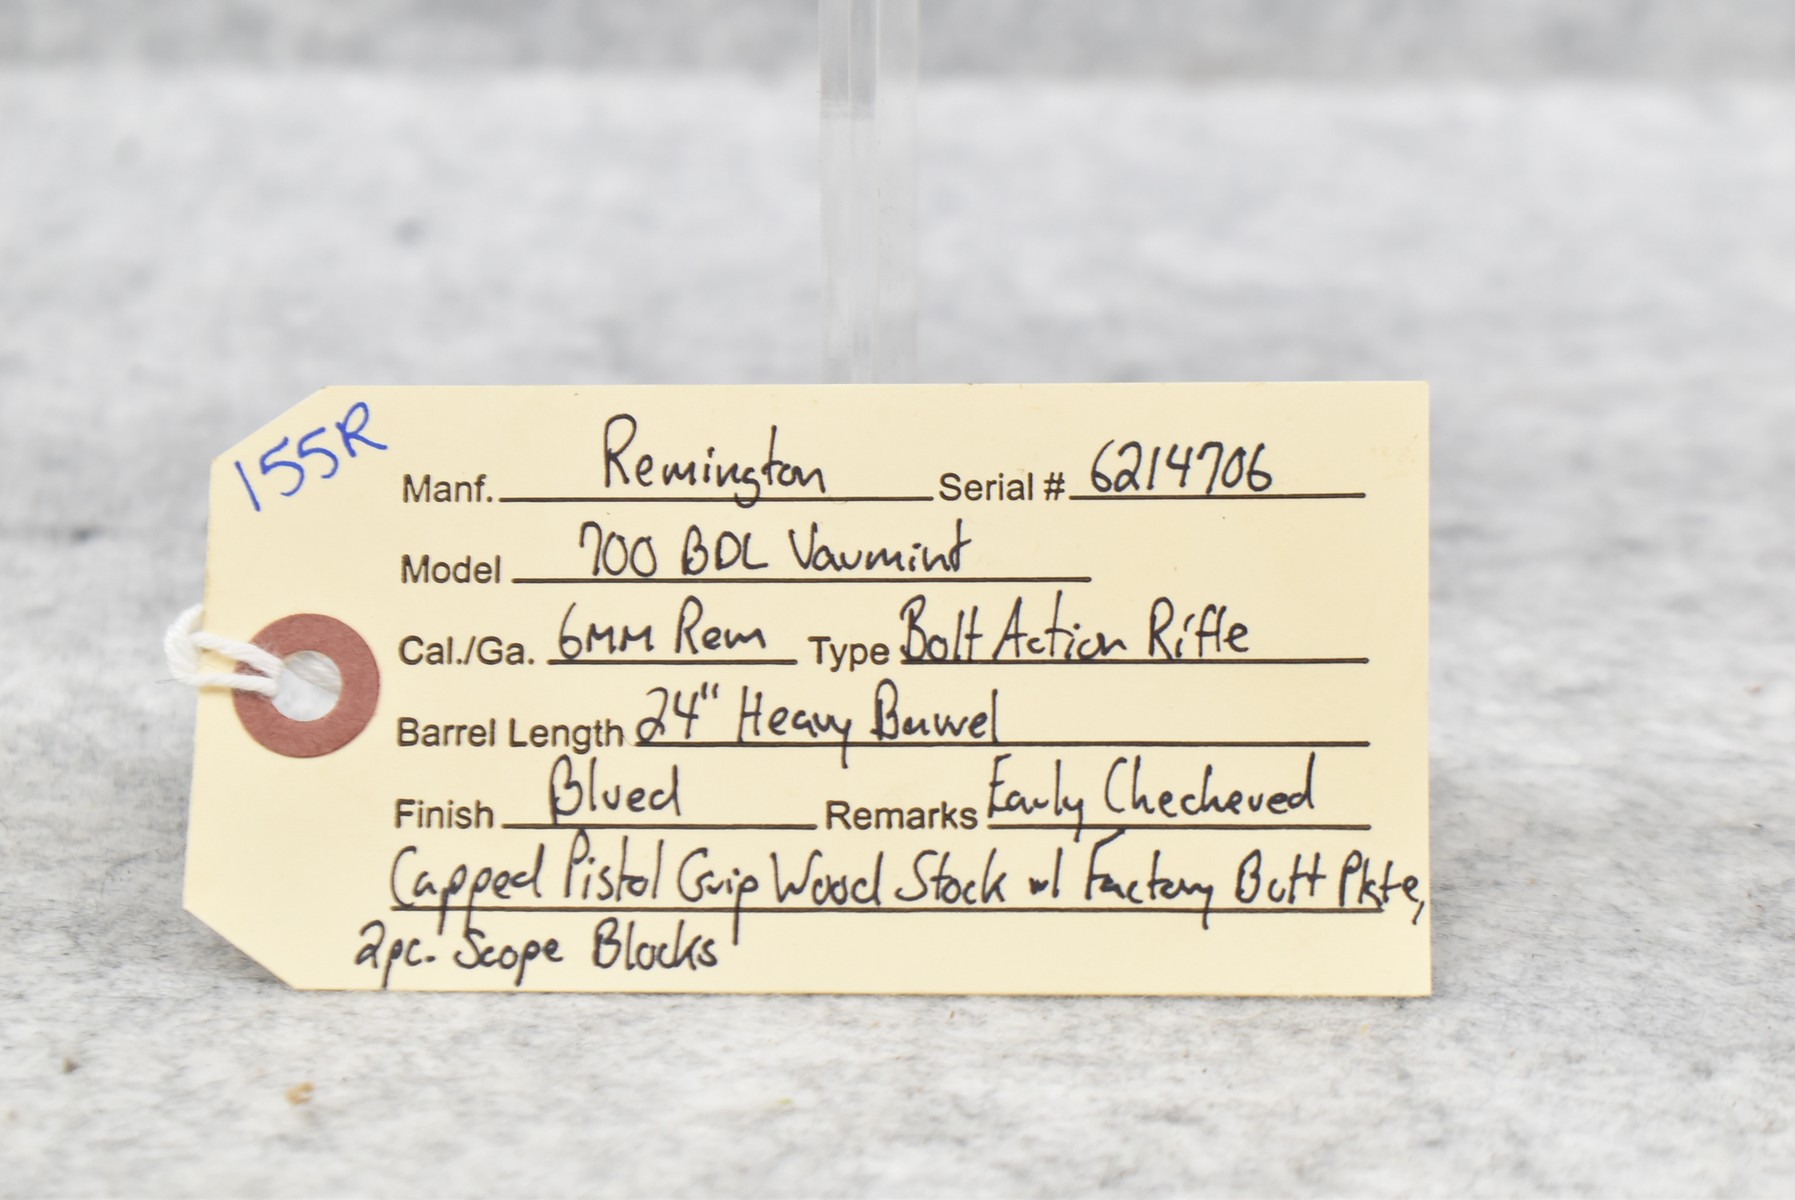 155R
Manf. Remington Serial # 6214706
Model 700 BDL Varmint
Cal./Ga. 6MM Rem Type Bolt Action Rifle
Barrel Length 24" Heavy Barrel
Finish Blued Remarks Early Checkered
Capped Pistol Grip Wood Stock w/ Factory Butt Plate,
2pc. Scope Blocks